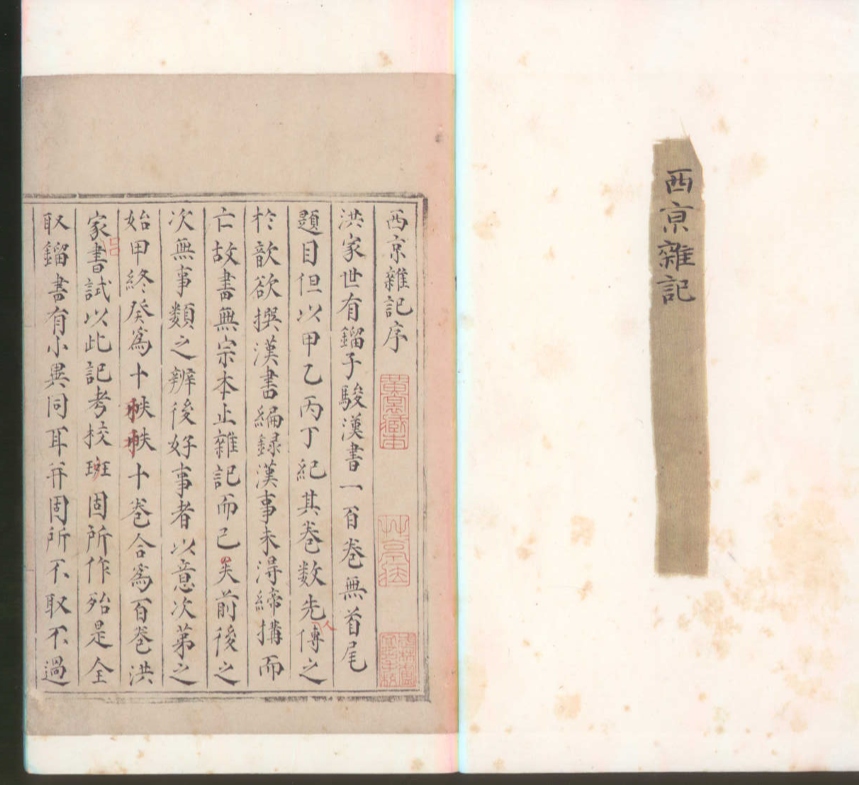 西京雜記
西京雜記序
洪家世有鎦子駿漢書一百卷無首尾
題目但以甲乙丙丁紀其卷數先傳之
於歆欲撰漢書編録漢事未得締搆而
亡故書無宗本止雜記而已失前後之
次無事類之辨後好事者以意次第之
始甲終癸爲十袟袟十卷合爲百卷洪
家書試以此記考校班固所作殆是全
取鎦書有小異同耳并固所不取不過